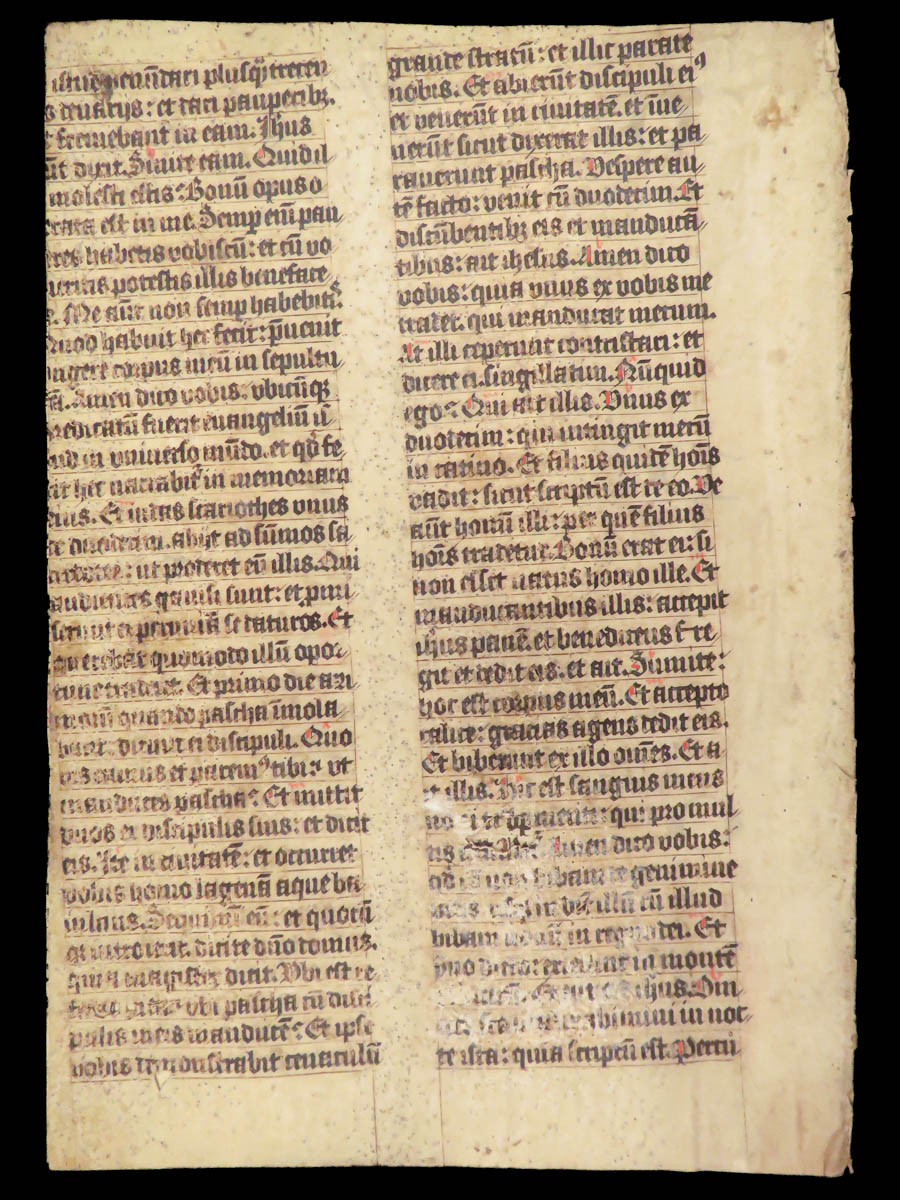 istud venūdari plusq̄ trecen
s denarijs: et dari pauperibꝫ.
t fremebant in eam. Ih̄us
ūt dixit. Sinite eam. Quid il
molesti estis? Bonū opus o
rata est in me. Semp̄ em̄ pau
res habetis vobiscū: et cū vo
ueritis potestis illis beneface
e. Me aūt non semp̄ habebitis.
Quod habuit hec fecit: p̄uenit
ungere corpus meū in sepultu
rā. Amen dico vobis. vbicūqꝫ
redicatū fuerit euangeliū is
tud in vniuerso mūdo. et qđ fe
cit hec narrabit᷑ in memoriam
eius. Et iudas scariothes vnus
de duodecim. abijt ad sūmos sa
cerdotes: ut proderet eū illis. Qui
audientes gauisi sunt: et pmi
serunt ei pecuniā se daturos. Et
querebat quomodo illū opor
tune traderet. Et primo die azi
morū quando pascha īmola
bant. dicunt ei discipuli. Quo
vis eamus et paremꝰ tibi: ut
manduces pascha? Et mittit
duos ex discipulis suis: et dicit
eis. Ite in ciuitatē: et occurret
vobis homo lagenā aque ba
iulans. Sequimini eū: et quocū
qꝫ introierit. dicite dn̄o domus.
quia magister dicit. Vbi est re
fectio mea: vbi pascha cū disci
pulis meis manducē? Et ipse
vobis demonstrabit cenaculū
grande stratū: et illic parate
nobis. Et abierūt discipuli eiꝰ
et venerūt in ciuitatē. et inue
nerūt sicut dixerat illis: et pa
rauerunt pascha. Vespere au
tē facto: venit cū duodecim. Et
discūbentibꝫ eis et manducā
tibus: ait ihesus. Amen dico
vobis: quia vnus ex vobis me
tradet. qui manducat mecum.
At illi ceperunt contristari: et
dicere ei. singillatim. Nūquid
ego? Qui ait illis. Vnus ex
duodecim: qui intingit mecū
in catino. Et filius quidē hoīs
vadit: sicut scriptū est de eo. Ve
aūt homini illi: per quē filius
hoīs tradetur. Bonū erat ei: si
non esset natus homo ille. Et
manducantibus illis: accepit
ih̄us panē. et benedicens fre
git et dedit eis. et ait. Sumite:
hoc est corpus meū. Et accepto
calice: gracias agens dedit eis.
Et biberunt ex illo om̄es. Et a
it illis. Hic est sanguis meus
testamenti: qui pro mul
tis Amen dico vobis:
qđ iā non bibam de genimine
vitis usqꝫ in diē illū cū illud
bibam nouū in regno dei. Et
ymno dicto: exierunt in montē
oliuarū. Et ait eis ih̄us. Om
nes scandalizabimini in noc
te ista: quia scriptū est. Percu